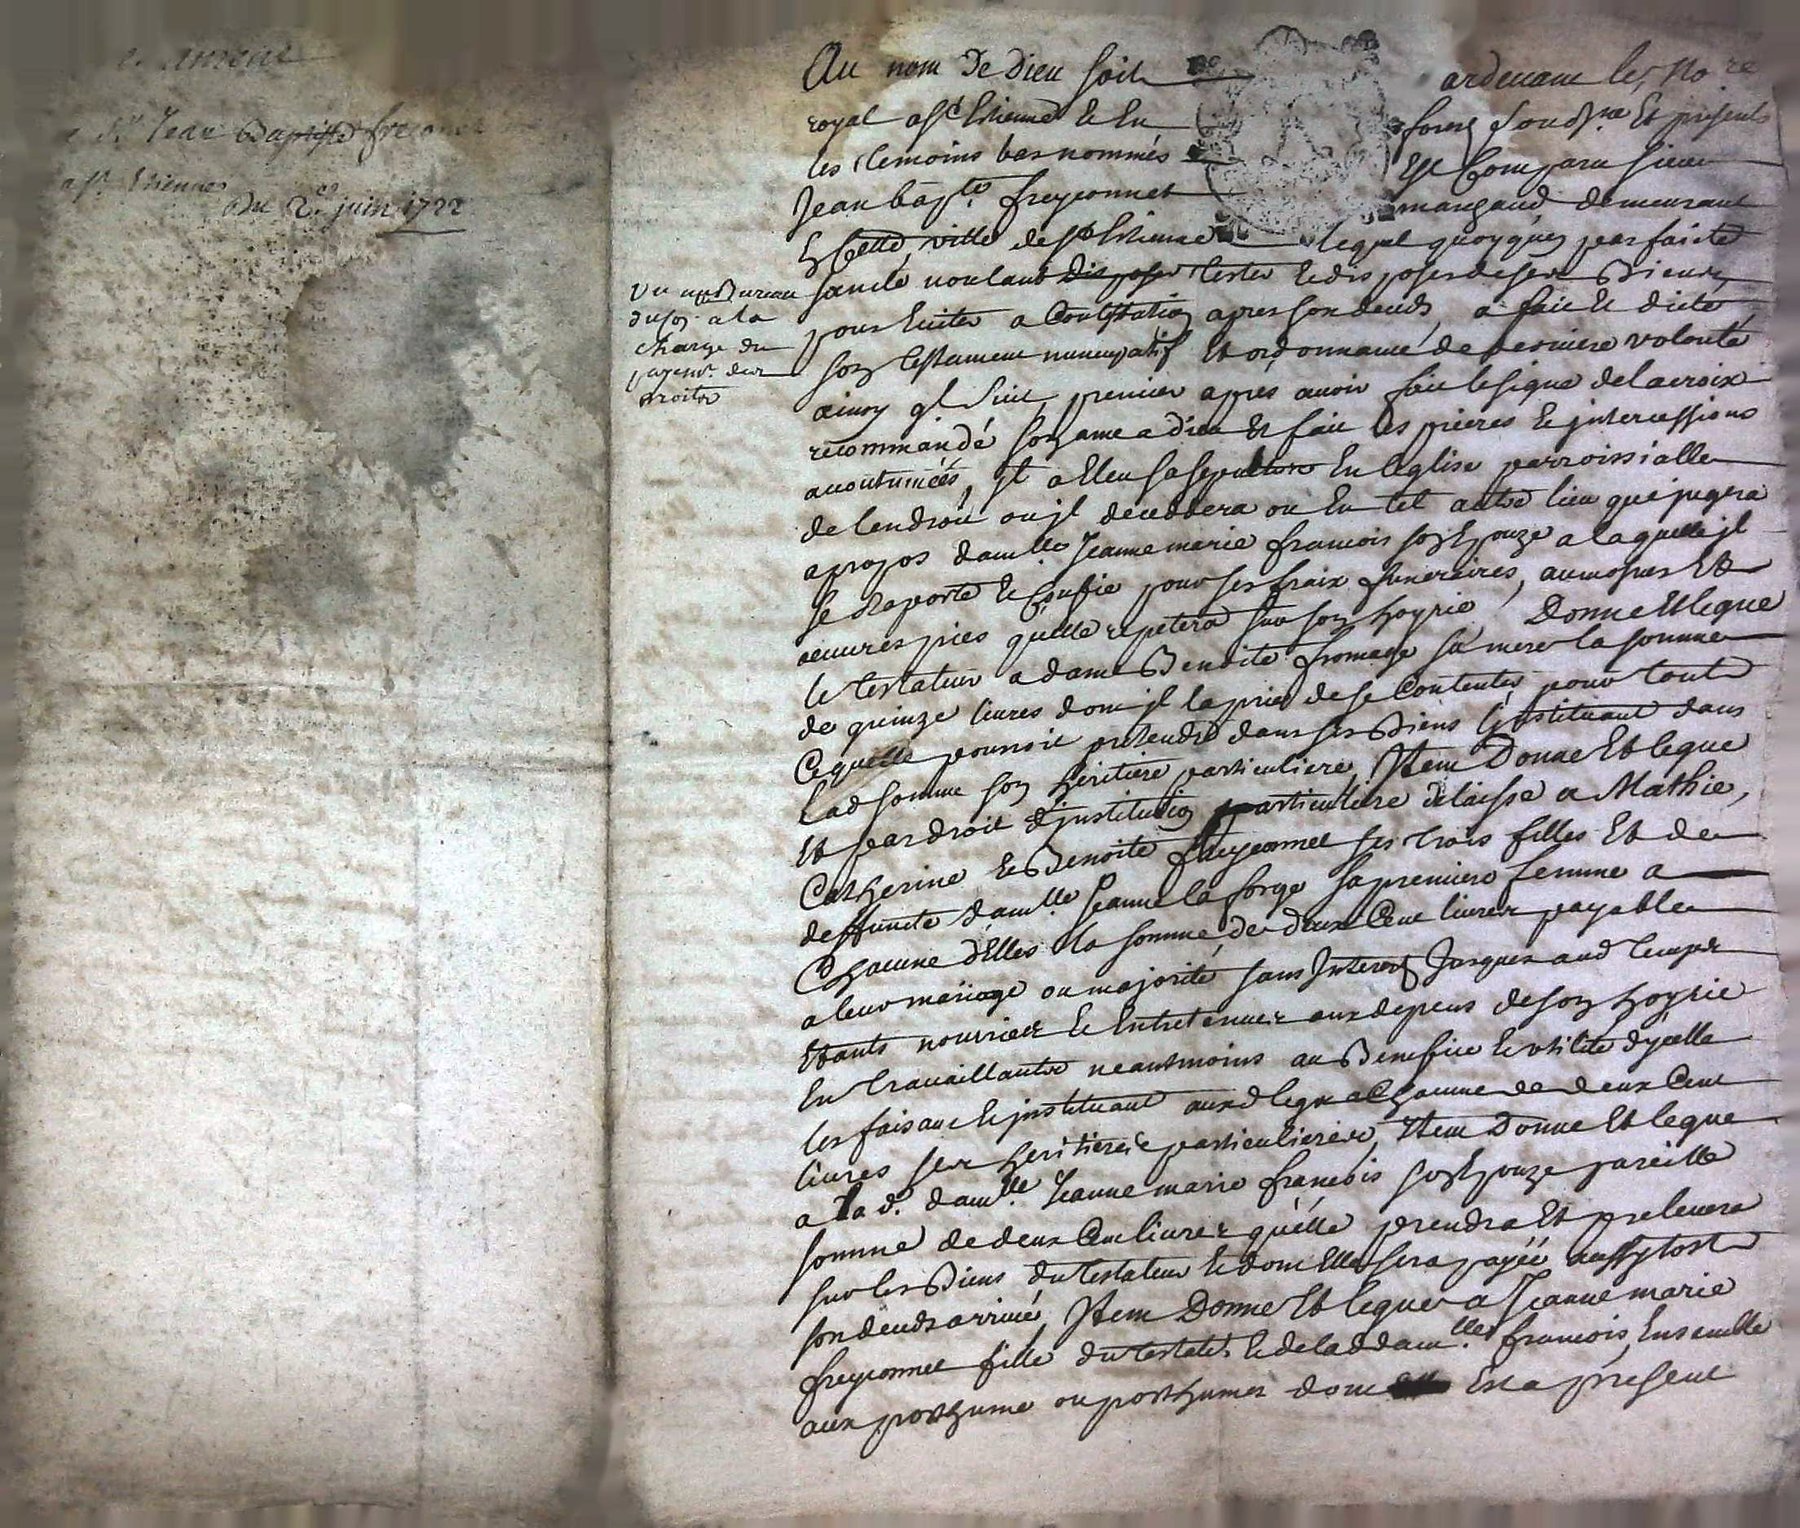 Sr Jean Baptiste freyconnet
a st Etienne
Du 2e juin 1722
vu au Bureau
du soz a la
charge du
payemt des
droits
Au nom de dieu soit pardevant les No re
royal a st Etienne le En forez soussne Et presents
les temoins bas nommés Est Comparu sieur
Jean bapte freyconnet marchand demeurant
En Cette ville de st Etienne lequel quoyqu'en parfaite
santé voulant disposer tester Et disposer de ses Biens
pour Eviter a Contestation apres son deceds, a fait Et dicté
son testament nuncupatif Et ordonnance de derniere volonté
ainsy ql suit, premier apres avoir fait le signe de la croix
recommandé son ame a dieu Et fait les prieres Et jntercessions
accoutumées, jl a Eleu sa sepulture En l'eglise parroissialle
de lendroit ou jl deceddera ou En tel autre lieu que jugera
apropos damlle Jeanne marie francois son Epouze a laquelle jl
se Raporte Et Confie pour ses fraix funeraires, aumosnes Et
oeuvres pies qu'elle repetera sur son hoyrie, Donne Et legue
le testateur a dame Benoite fromage sa mere la somme
de quinze livres dont jl la prie de se Contenter pour tout
Ce quelle pourroit pretendre dans ses Biens L'instituant dans
lad somme son heritiere particuliere, Jtem Donne Et legue
Et par droit d'jnstitution particuliere delaisse a Mathie,
Catherine Et Benoite freyconnet ses trois filles Et de
deffuncte damlle Jeanne la forge sa premiere femme a
Chacune d'Elles la somme de deux Cent livres payable
a leur mariage ou majorité sans Jnterest Jusques aud temps
Etants nourries Et Entretenues aux depens de son hoyrie
En travaillants neantmoins au Benefice Et utilité d'jcelle
les faisant Et jnstituant auxd legs a Chacune de deux Cent
livres ses heritieres particulieres, Jtem Donne Et legue
a la d. damlle Jeanne marie francois son Epouze pareille
somme de deux Cent livres qu'elle prendra Et prelevera
sur les Biens du testateur Et dont Elle sera payée aussytost
son deceds arrivé, Jtem Donne Et legue a Jeanne marie
freyconnet fille du testatr. Et de lad damlle francois, Ensemble
aux posthume ou posthumes dont Est a present